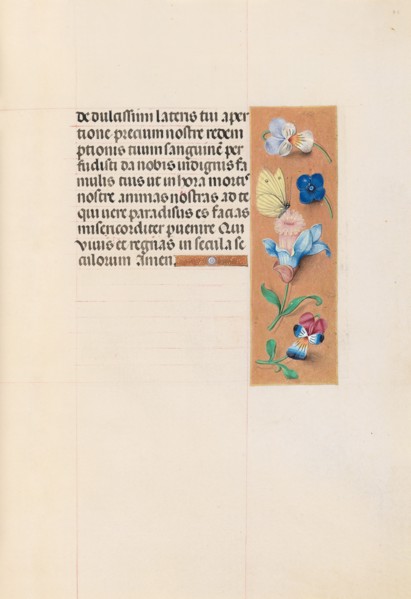 de dulcissimi lateris tui aper
tione precium nostre redem
ptionis tuum sanguinē per
fudisti da nobis indignis fa
mulis tuis ut in hora mortis
nostre animas nostras ad te
qui vere paradisus es facias
misericorditer pvenire Qui
vivis et regnas in secula se
culorum Amen.